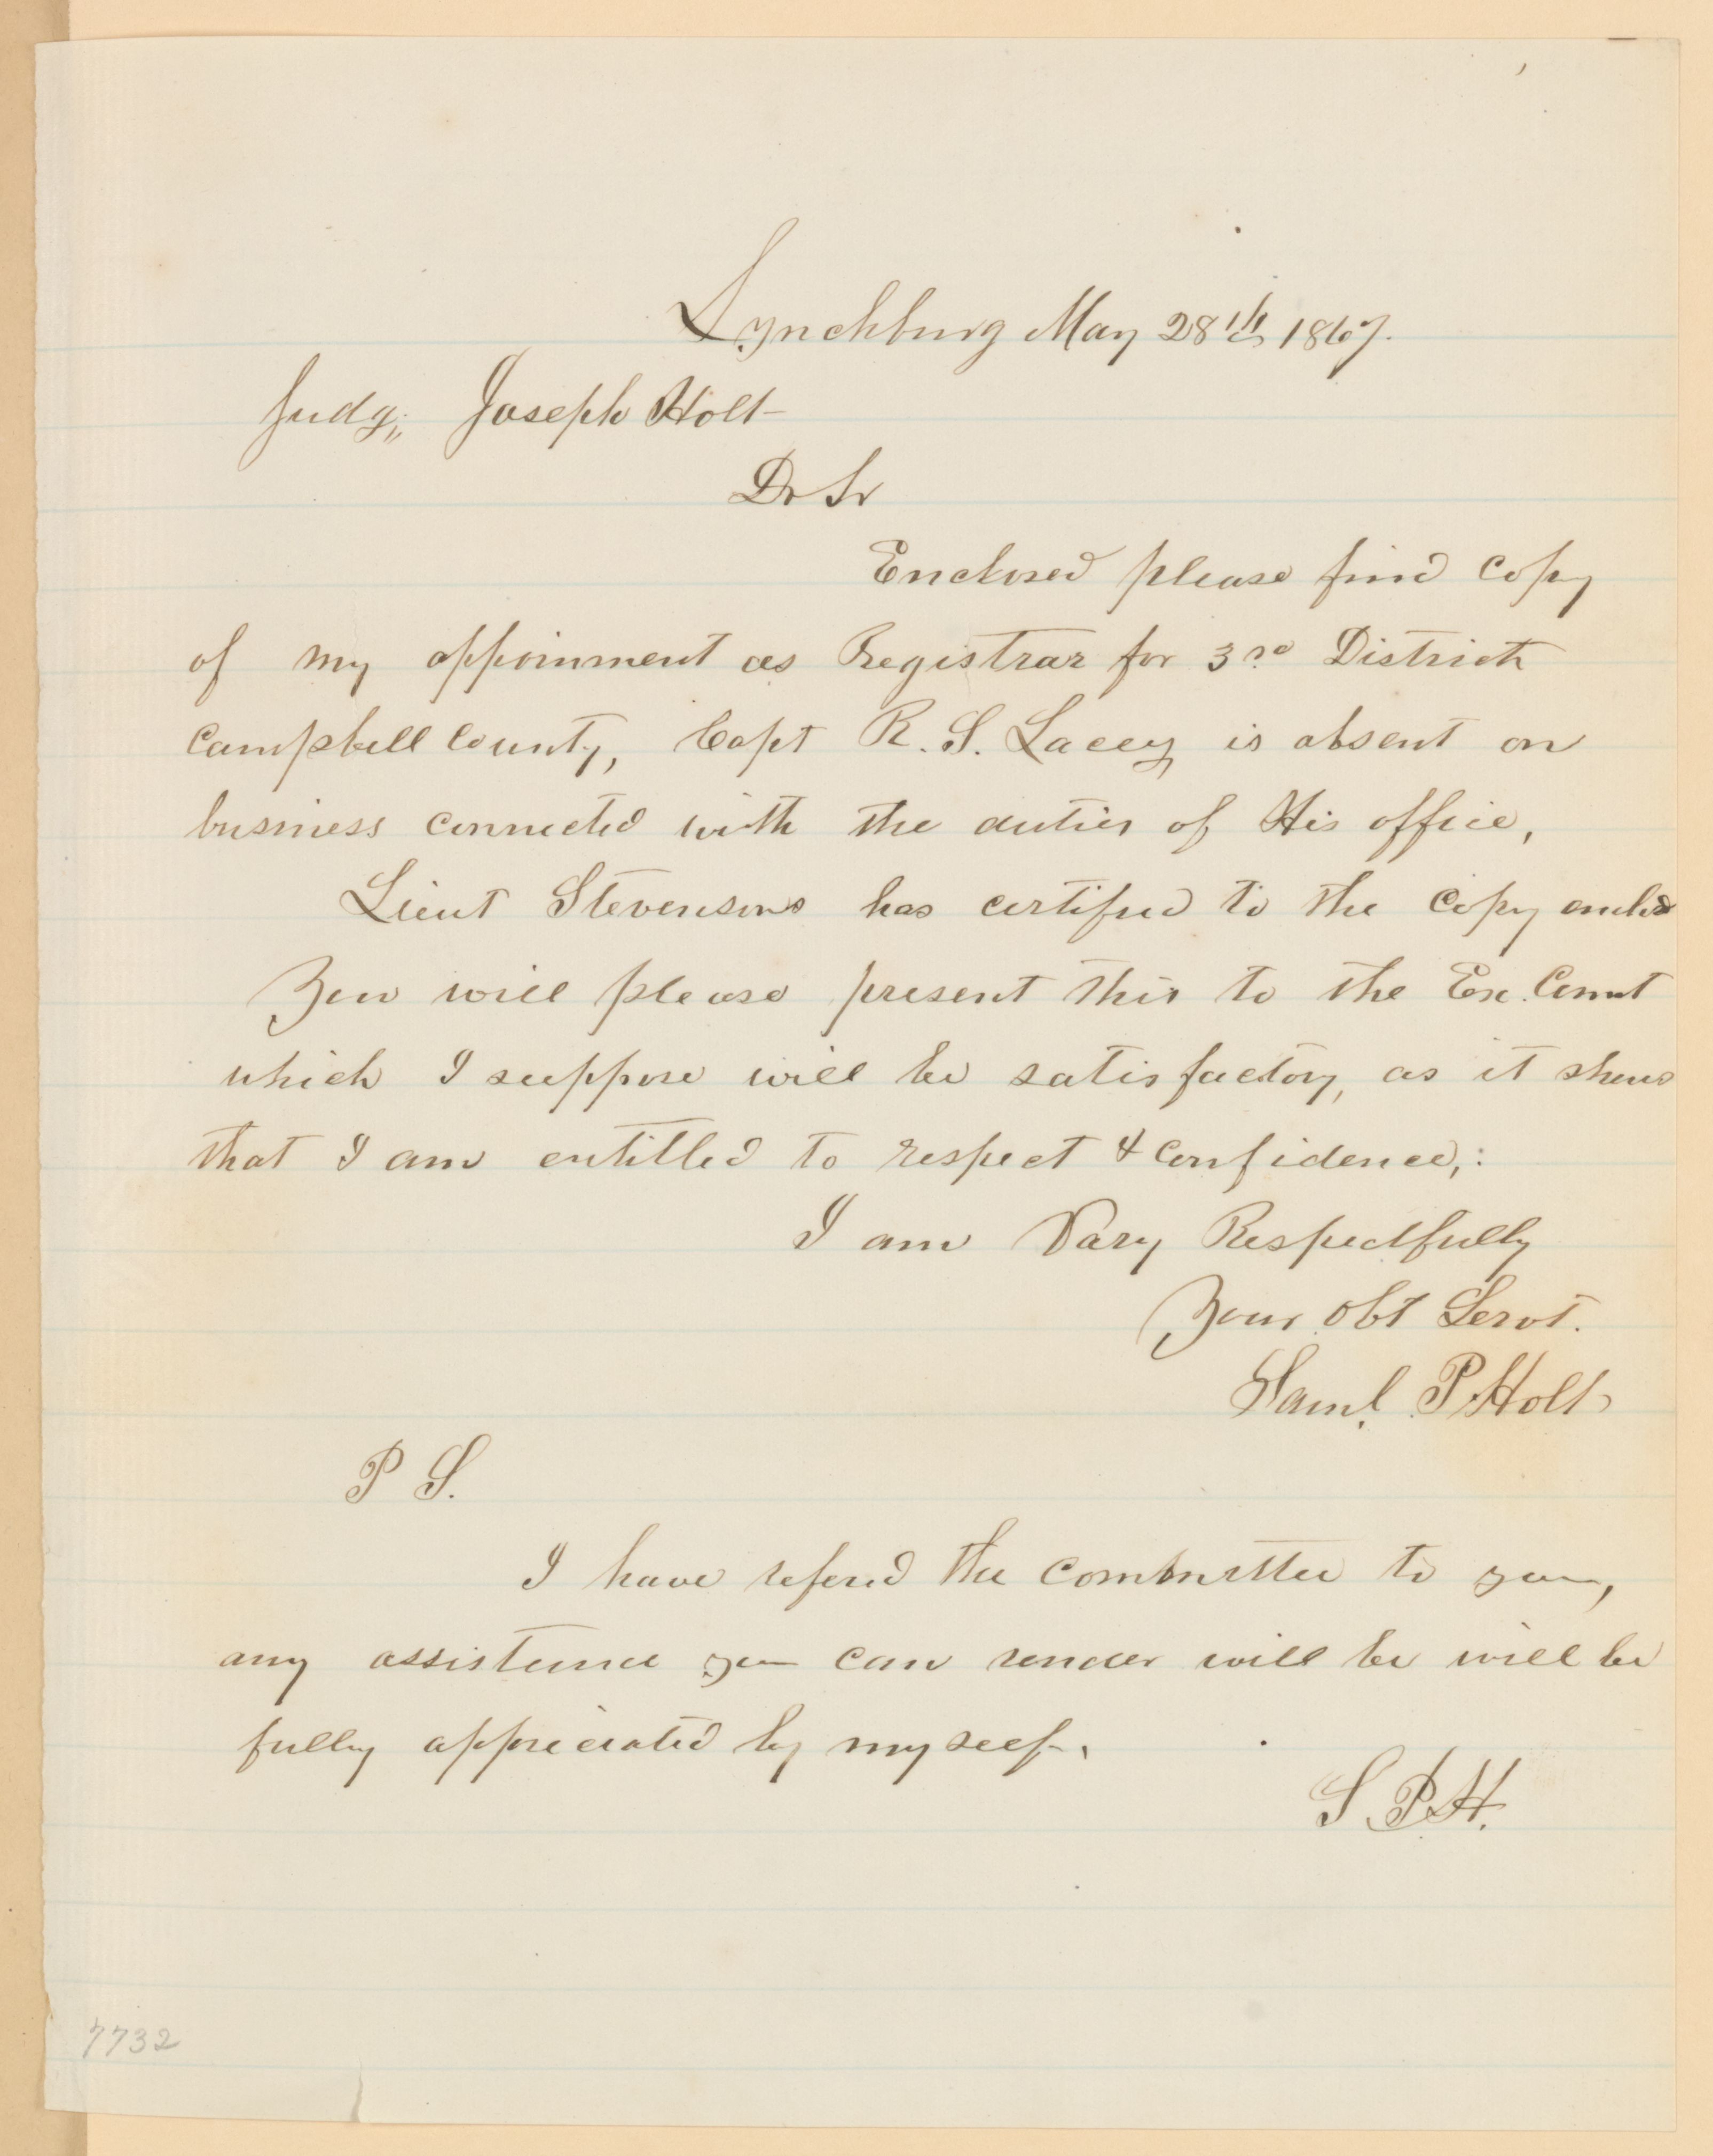 Lynchburg May 28th 1867.
Judg, Joseph Holt
Dr Sr
Enclosed please find copy
of my appoinment as Registrar for 3rd District
Campbell County, Capt R. S. Lacey is absent on
business connected with the duties of His office,
Lieut Stevenson has certified to the copy
You will please present this to the Ex. Comt
which I suppose will be satisfactory, as it shews
that I am entitled to respect & confidence,:
I am Vary Respectfully
Your Obt Servt.
Saml P Holt
P S.
I have referd the committee to you,
any assistance you can render will be will be
fully appreciated by myself.
S. P. H.
7732